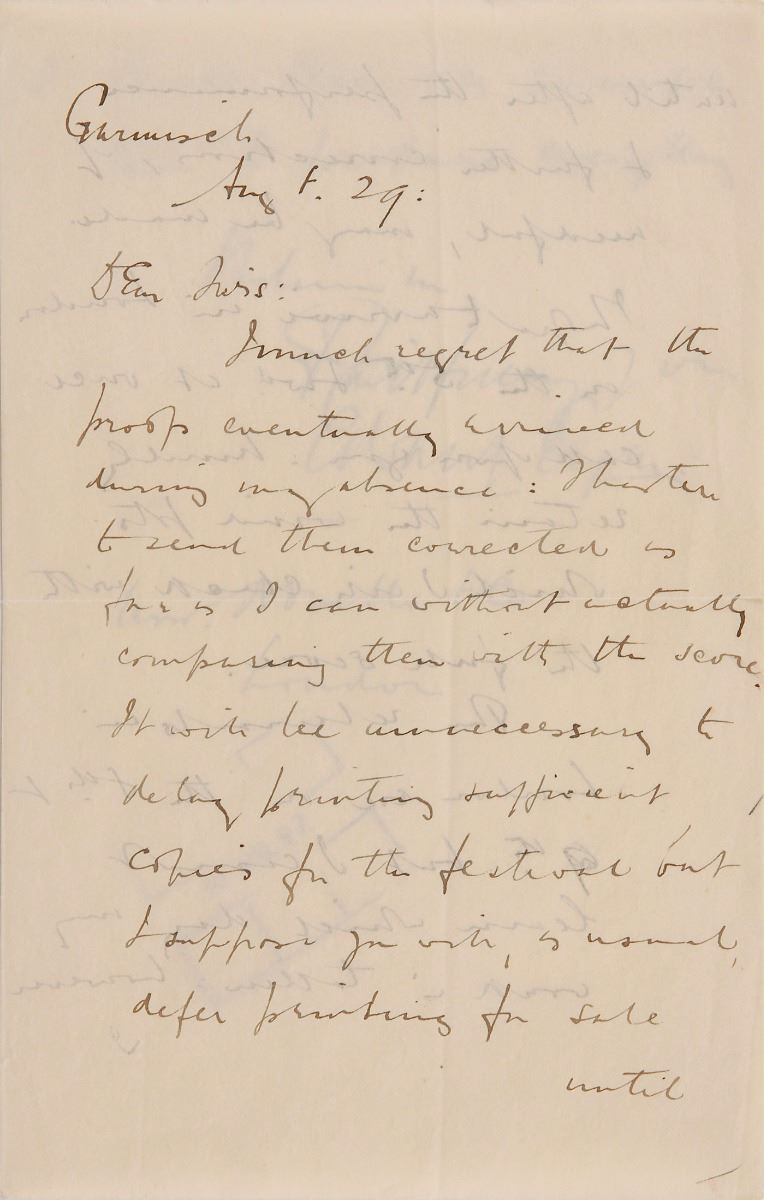 Garmisch
Aug 29:
Dear Swiss:
I much regret that the
proofs eventually arrived
during my absence: I hasten
to send them corrected as
far as I can without actually
comparing them with the score.
It will be unnecessary to
delay printing sufficient
copies for the festival but
I suppose you will, as usual,
defer printing for sale
until